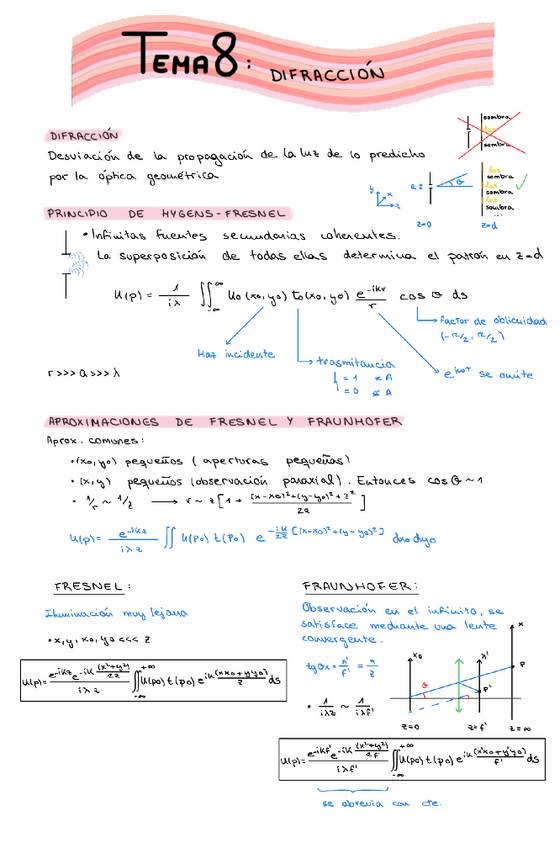 TEMA 8: DIFRACCIÓN
DIFRACCIÓN
Desviación de la propagación de la luz de lo predicho
por la óptica geométrica
sombra
luz
sombra
luz
sombra
luz
sombra
luz
sombra
...
y x z
θ
z=0 z=d
PRINCIPIO DE HYGENS-FRESNEL
• Infinitas fuentes secundarias coherentes.
La superposición de todas ellas determina el patrón en z=d
U(p) = 1/iλ ∬_{-∞}^{∞} U₀(x₀,y₀) t₀(x₀,y₀) e^{-ikr}/r cos θ ds
Factor de oblicuidad
(-π/2, π/2)
Haz incidente
trasmitancia
= 1 ∈ A
= 0 ∉ A
e^{iωt} se omite
r >>> a >>> λ
APROXIMACIONES DE FRESNEL Y FRAUNHOFER
Aprox. comunes:
• (x₀,y₀) pequeños (aperturas pequeñas)
• (x,y) pequeños (observación paraxial). Entonces cos θ ~ 1
• 1/r ~ 1/z → r ~ z [1 + (x-x₀)²+(y-y₀)²+z²/2z]
U(p) = e^{-ikz}/iλz ∬ U(p₀) t(p₀) e^{-ik/2z [(x-x₀)²+(y-y₀)²]} dx₀dy₀
FRESNEL:
Iluminación muy lejana
• x, y, x₀, y₀ <<< z
U(p) = e^{-ikz} e^{-ik (x²+y²)/2z}/iλz ∬_{-∞}^{+∞} U(p₀) t(p₀) e^{ik (xx₀+yy₀)/z} ds
FRAUNHOFER:
Observación en el infinito, se
satisface mediante una lente
convergente.
tg θx = x'/f' = x/z
• 1/iλz ~ 1/iλf'
x₀ x' x
θ P P'
z=0 z=f' z=∞
U(p) = e^{-ikf'} e^{-ik (x²+y²)/2f'}/iλf' ∬_{-∞}^{+∞} U(p₀) t(p₀) e^{ik (x'x₀+y'y₀)/f'} ds
se abrevia con cte.